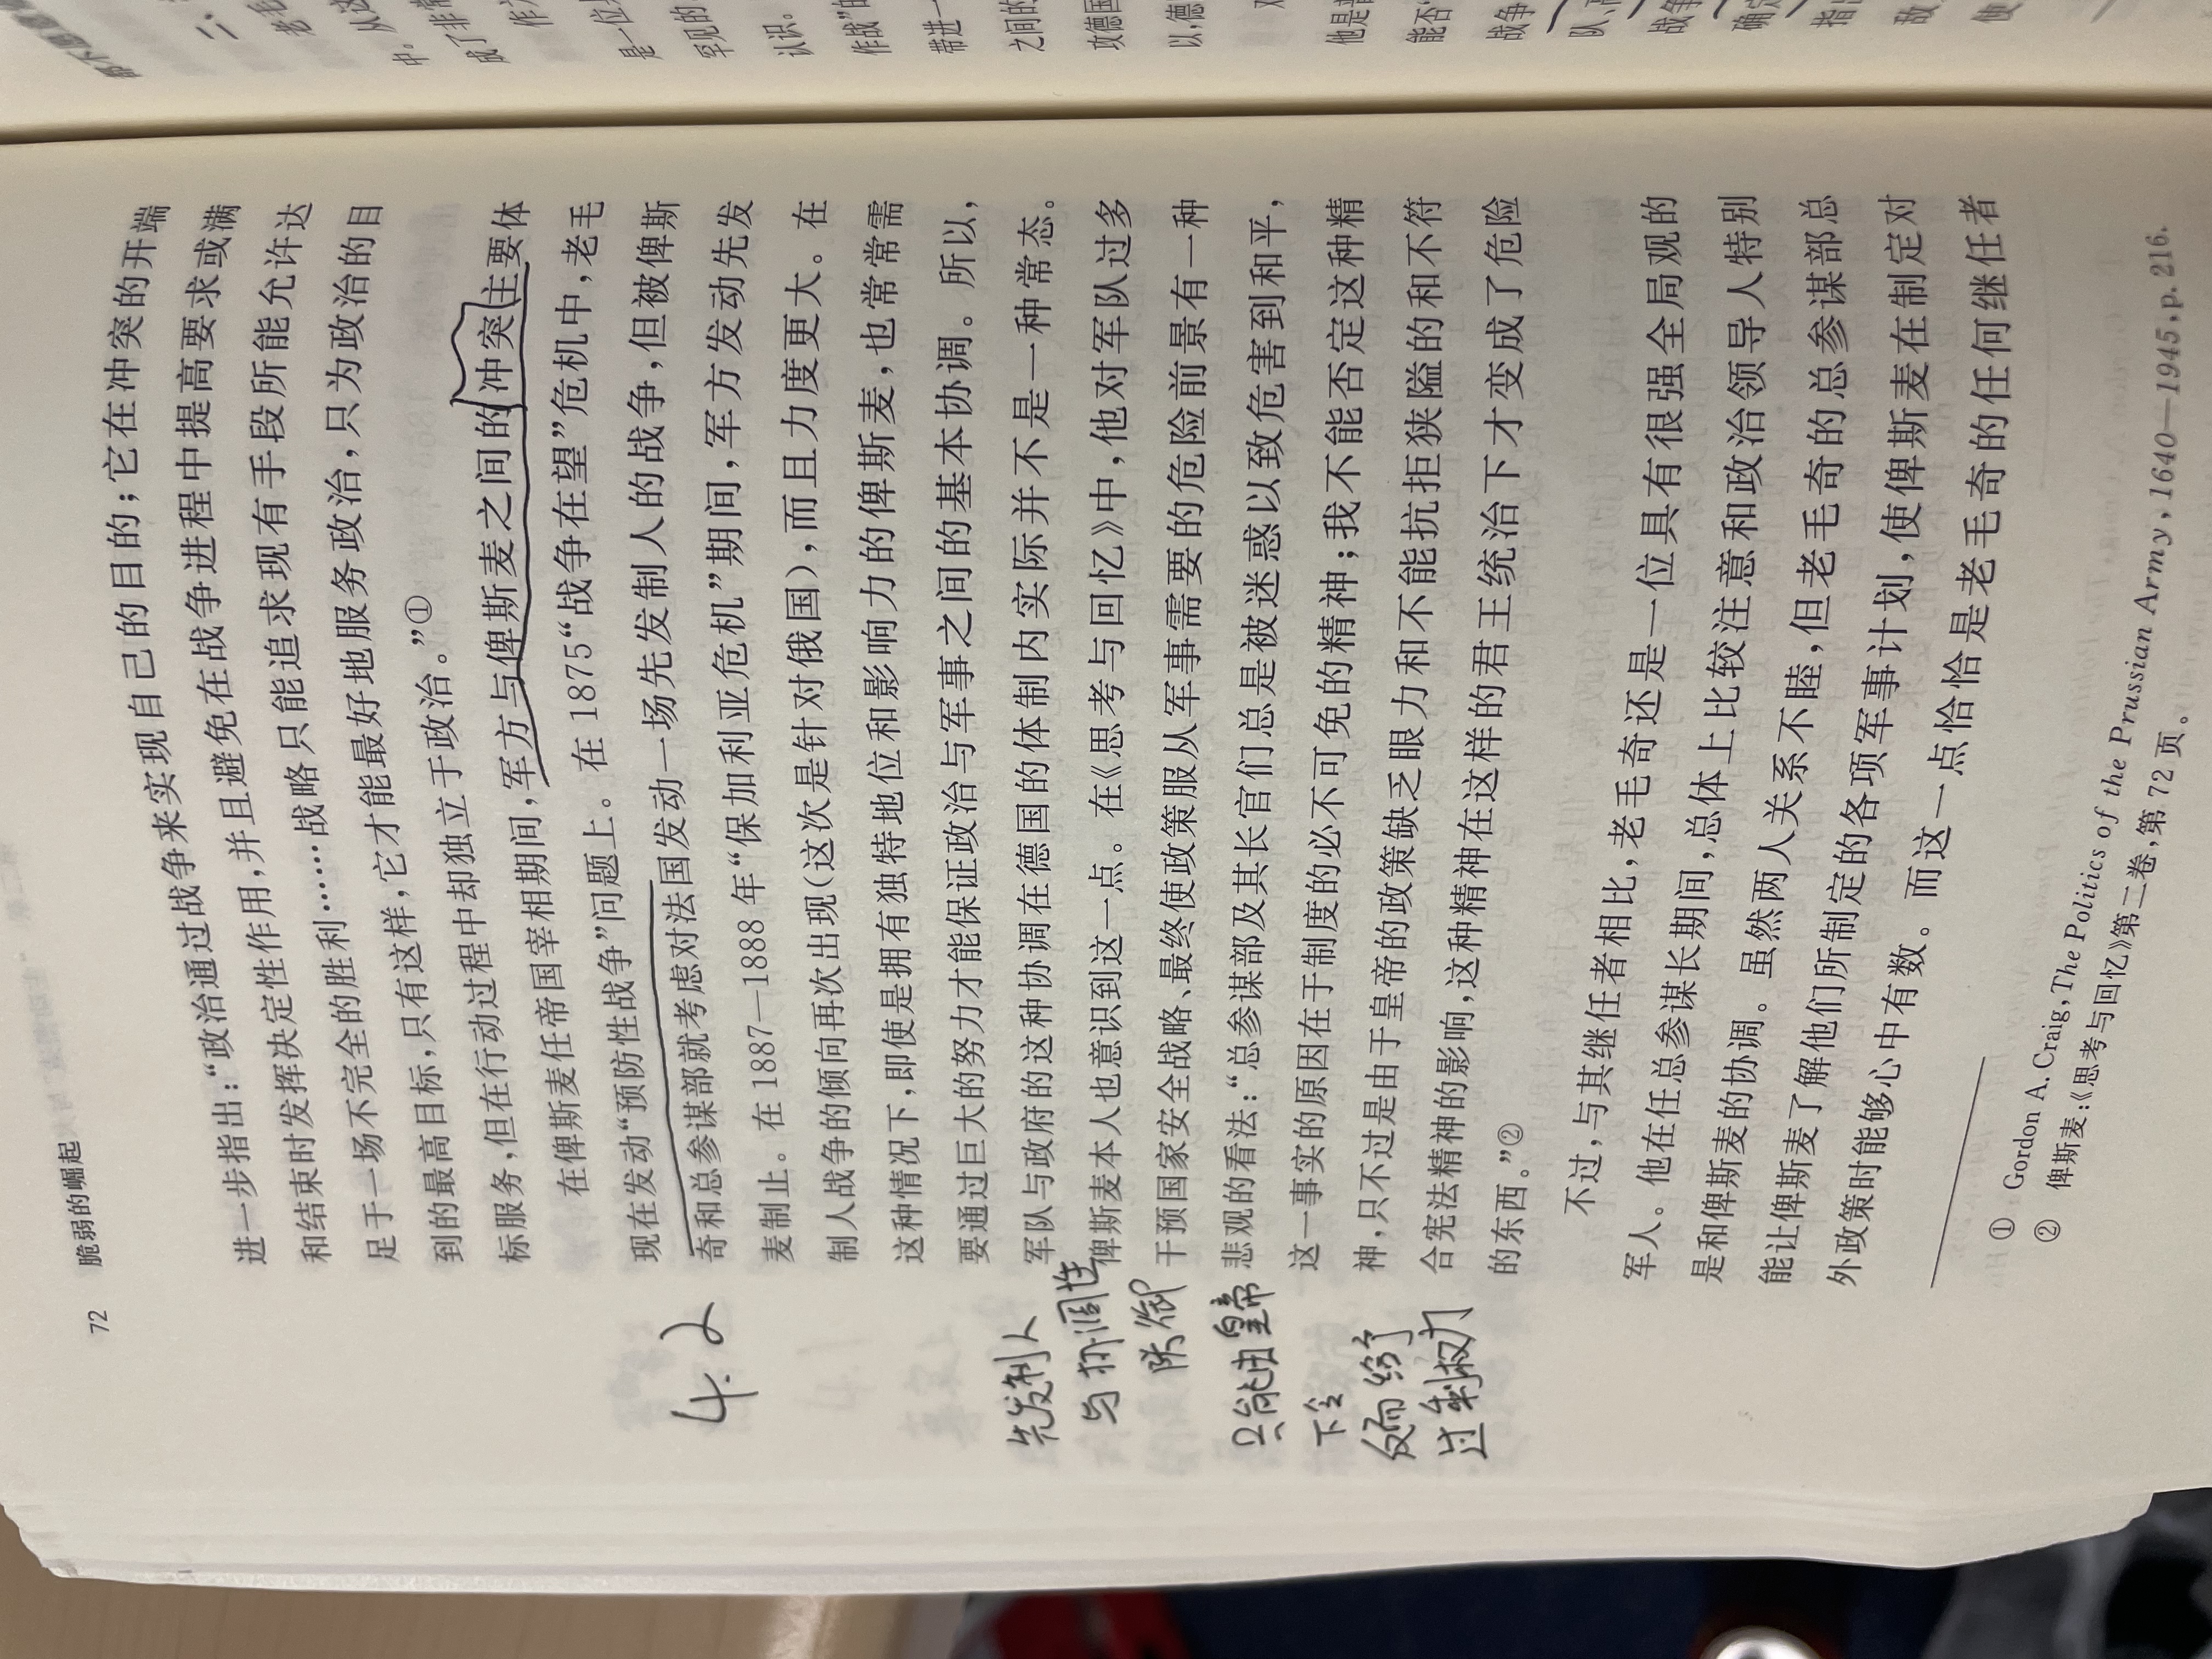 72 脆弱的崛起
进一步指出：“政治通过战争来实现自己的目的；它在冲突的开端
和结束时发挥决定性作用，并且避免在战争进程中提高要求或满
足于一场不完全的胜利……战略只能追求现有手段所能允许达
到的最高目标，只有这样，它才能最好地服务政治，只为政治的目
标服务，但在行动过程中却独立于政治。”①
在俾斯麦任帝国宰相期间，军方与俾斯麦之间的冲突主要体
现在发动“预防性战争”问题上。在1875“战争在望”危机中，老毛
奇和总参谋部就考虑对法国发动一场先发制人的战争，但被俾斯
麦制止。在1887—1888年“保加利亚危机”期间，军方发动先发
制人战争的倾向再次出现（这次是针对俄国），而且力度更大。在
这种情况下，即使是拥有独特地位和影响力的俾斯麦，也常常需
要通过巨大的努力才能保证政治与军事之间的基本协调。所以，
军队与政府的这种协调在德国的体制内实际并不是一种常态。
俾斯麦本人也意识到这一点。在《思考与回忆》中，他对军队过多
干预国家安全战略、最终使政策服从军事需要的危险前景有一种
悲观的看法：“总参谋部及其长官们总是被迷惑以致危害到和平，
这一事实的原因在于制度的必不可免的精神；我不能否定这种精
神，只不过是由于皇帝的政策缺乏眼力和不能抗拒狭隘的和不符
合宪法精神的影响，这种精神在这样的君王统治下才变成了危险
的东西。”②
不过，与其继任者相比，老毛奇还是一位具有很强全局观的
军人。他在任总参谋长期间，总体上比较注意和政治领导人特别
是和俾斯麦的协调。虽然两人关系不睦，但老毛奇的总参谋部总
能让俾斯麦了解他们所制定的各项军事计划，使俾斯麦在制定对
外政策时能够心中有数。而这一点恰恰是老毛奇的任何继任者
① Gordon A. Craig, The Politics of the Prussian Army, 1640—1945, p. 216.
② 俾斯麦：《思考与回忆》第二卷，第72页。
4.2
先发制人
与协调性
陈衍
只能由皇帝
下令
反而给予
过制权力